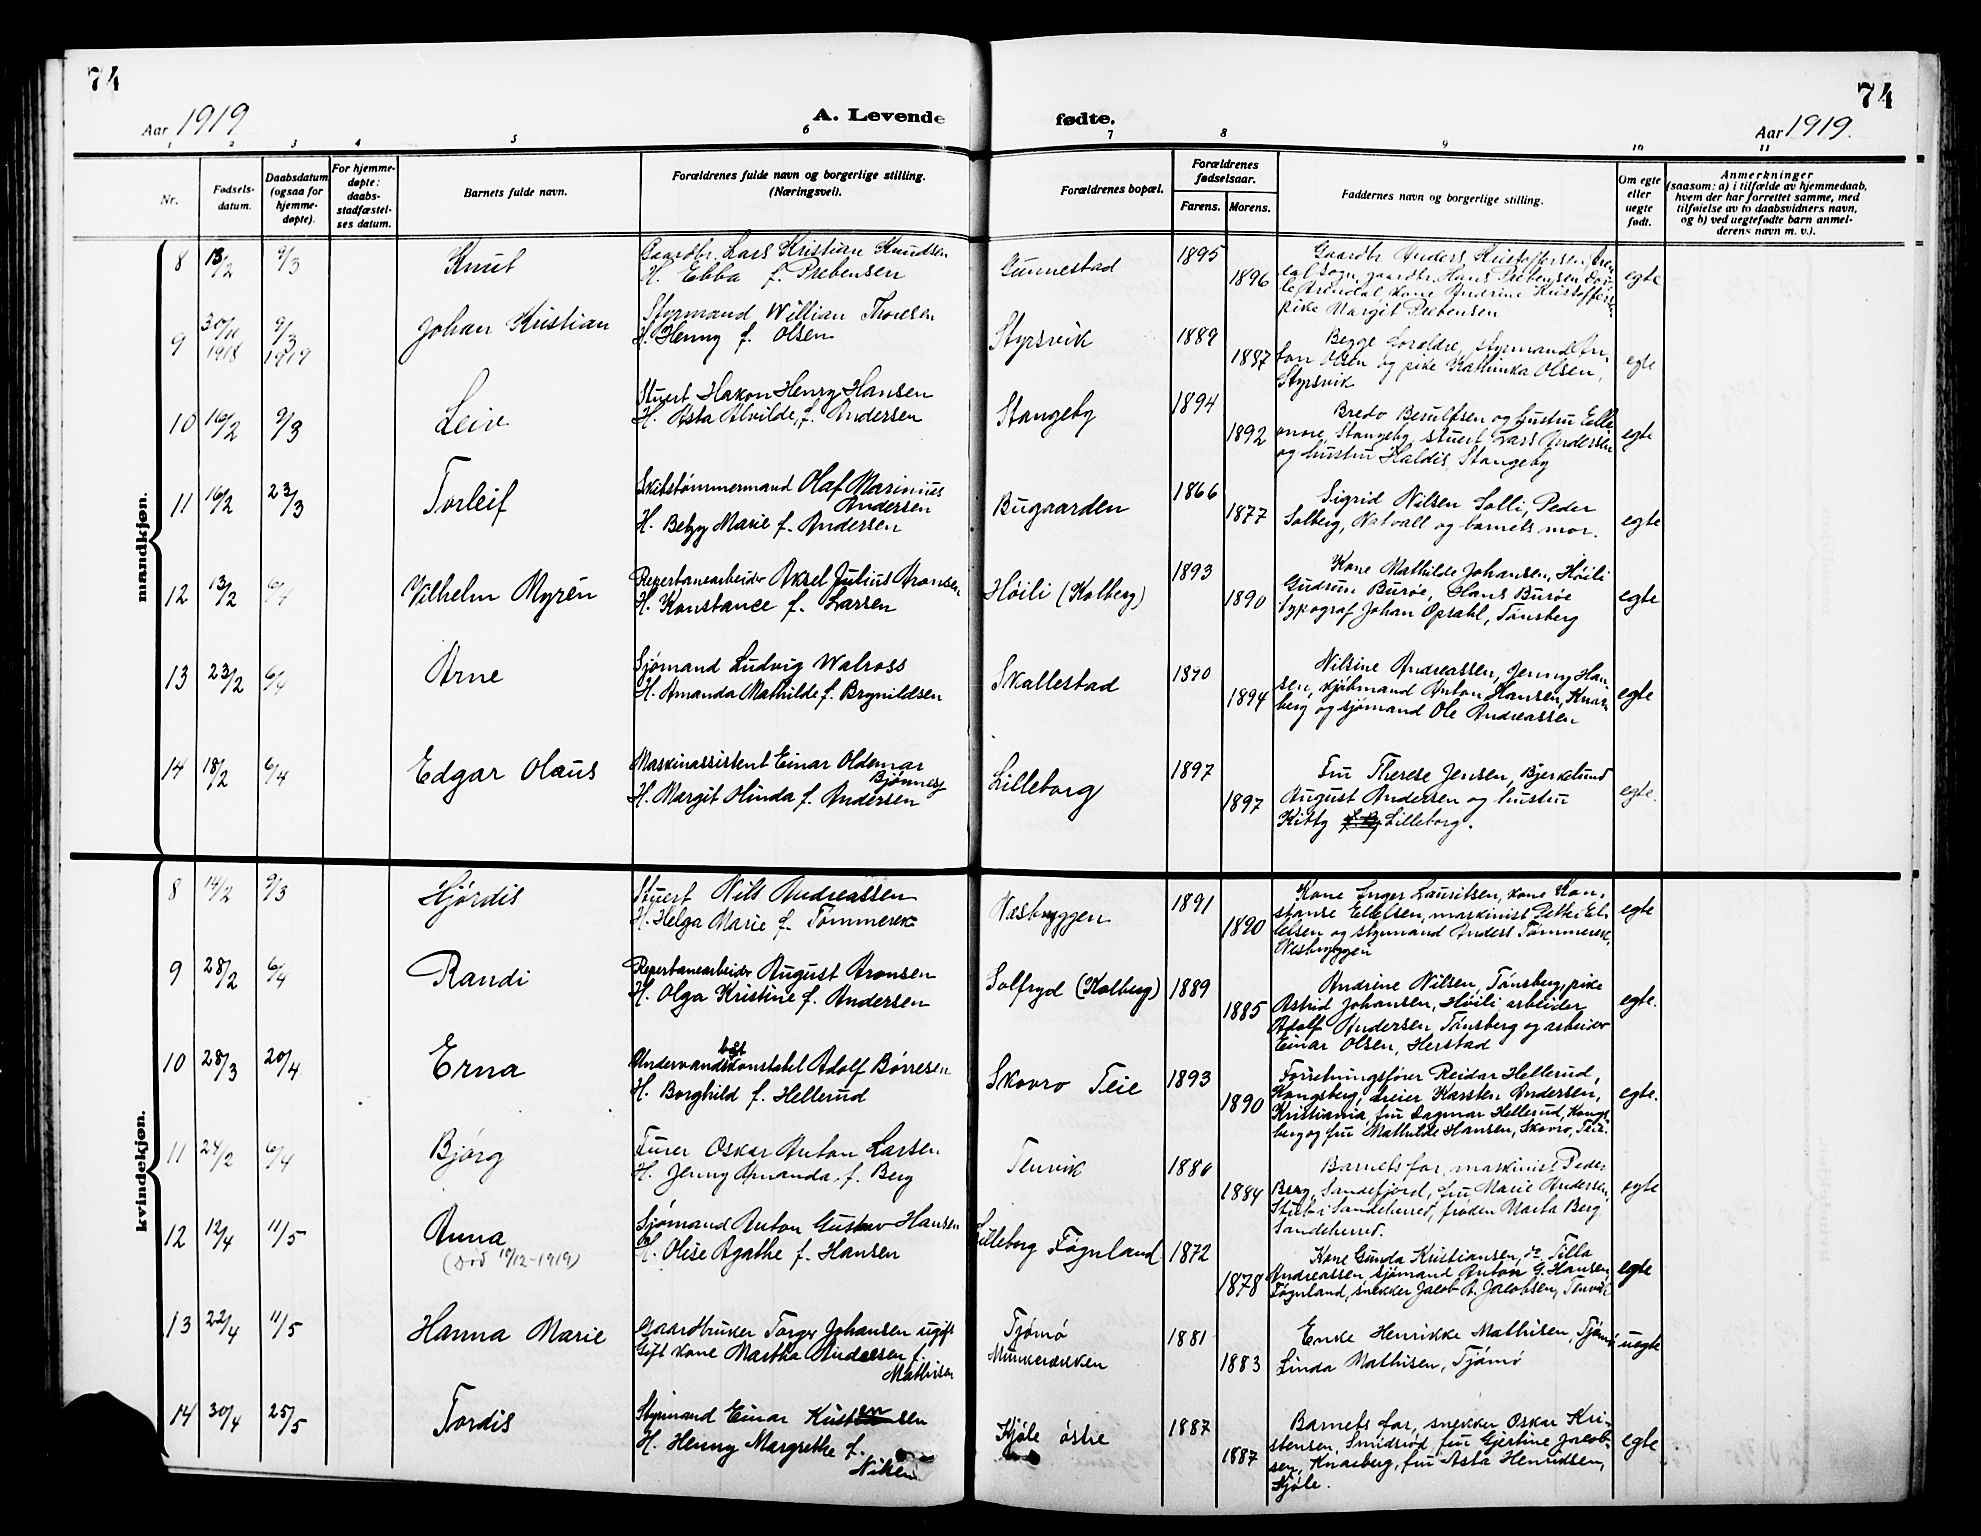 74
74
Aar 1919
A. Levende fødte.
Aar 1919.
1 2 3 4 5 6 7 8 9 10 11
Nr.
Fødsels-
datum.
Daabsdatum
(ogsaa for
hjemme-
døpte).
For hjemme-
døpte:
daabs-
stadfæstel-
ses datum.
Barnets fulde navn.
Forældrenes fulde navn og borgerlige stilling.
(Næringsvei).
Forældrenes bopæl.
Forældrenes
fødselsaar.
Farens. Morens.
Faddernes navn og borgerlige stilling.
Om egte
eller
uegte
født.
Anmerkninger
(saasom: a) i tilfælde av hjemmedaab,
hvem der har forrettet samme, med
tilføielse av to daabsvidners navn,
og b) ved uegtefødte barn anmel-
derens navn m. v.).
mandkjøn.
8 13/2 9/3 Knut
Gaardbr. Lars Kristian Knudsen
H. Ebba f. Prebensen
Gunnestad 1895 1896
Gaardbr Anders Kristoffersen,
sogn, gaardbr. Hans Prebensen
Arendal, kone Andrine Kristoffersen
pike Margit Prebensen
egte
9 30/11 1918 9/3 1919 Johan Kristian
Styrmand Willian Thoresen
H. Henny f. Olsen
Styrsvik 1889 1887
Begge foreldre, styrmand An-
ton Olsen og pike Kathinka Olsen,
Styrsvik
egte
10 16/2 9/3 Leiv
Stuert Hakon Henry Hansen
H. Asta Alvilde, f. Andersen
Stangeby 1894 1892
Bredo Berulfsen og hustru Elle-
onore, Stangeby, stuert Lars Andersen
og hustru Haldis, Stangeby
egte
11 16/2 23/3 Torleif
Skibstømmermand Olaf Marinius
Andersen
H. Betzy Marie f. Andersen
Bugaarden 1866 1877
Sigrid Nilsen Solli, Peder
Solberg, Natvall og barnets mor.
egte
12 13/2 6/4 Vilhelm Myrén
Reperbanearbeider Aksel Julius Aronsen
H. Konstance f. Larsen
Høili (Kolberg) 1893 1890
Kone Mathilde Johansen, Høili
Gudrun Burøe, Hans Burøe
typograf Johan Opsahl, Tønsberg
egte
13 23/2 6/4 Arne
Sjømand Ludvig Walross
H. Amanda Mathilde f. Brynildsen
Skallestad 1890 1894
Nilsine Andreassen, Jenny Han-
sen, kjøbmand Anton Hansen, Knar-
berg og sjømand Ole Andreassen
egte
14 18/2 6/4 Edgar Olaus
Maskinassistent Einar Oldemar
Bjønnes
H. Margit Olinda f. Andersen
Lilleborg 1897 1897
Fru Therese Jensen, Bjerkelund
August Andersen og hustru
Kitty Lilleborg.
egte.
kvindekjøn.
8 14/2 9/3 Hjørdis
Stuert Nils Andreassen
H. Helga Marie f. Tømmerek
Næsbryggen 1891 1890
Kone Inger Lauritsen, kone Kon-
stanse Ellefsen, maskinist Petter El-
lefsen og styrmand Anders Tømmerek,
Nesbryggen
egte
9 28/2 6/4 Randi
Reperbanearbeider August Aronsen
H. Olga Kristine f. Andersen
Solfryd (Kolberg) 1889 1885
Andrine Nilsen, Tønsberg, pike
Astrid Johansen, Høili arbeider
Adolf Andersen, Tønsberg og arbeider
Einar Olsen, Herstad
egte.
10 28/3 20/4 Erna
båt
Undervandskonstabel Adolf Børresen
H. Borghild f. Hellerud
Skovro Teie 1893 1890
Forretningsfører Reidar Hellerud,
Kongsberg, dreier Karsten Andersen,
Kristiania, fru Dagmar Hellerud, Kongs-
berg og fru Mathilde Hansen, Skovro, Teie.
egte.
11 24/2 6/4 Bjørg
Furer Oskar Anton Larsen
H. Jenny Amanda, f. Berg
Tenvik 1880 1884
Barnets far, maskinist Peder
Berg, Sandefjord, fru Marie Andersen,
Stub i Sandeherred, frøken Marta Berg
Sandeherred.
egte
12 12/4 11/5 Anna
(Død 10/12-1919)
Sjømand Anton Gustav Hansen
H. Olise Agathe f. Hansen
Lilleborg Føgnland 1872 1878
Kone Gunda Kristiansen, do Tilla
Andreassen, sjømand Anton G. Hansen
Føgnland, snekker Jacob A. Jacobsen, Tenvik
egte
13 22/4 11/5 Hanna Marie
Gaardbruker Torger Johansen ugift
Gift kone Martha Andersen f.
Mathisen
Tjømø
Munkerækken
1881 1883
Enke Henrikke Mathisen, Tjømø
Linda Mathisen, Tjømø
uegte
14 30/4 25/5 Tordis
Styrmand Einar Kristensen
H. Henny Margrethe f.
Nilsen
Kjøle østre 1887 1887
Barnets far, snekker Oskar Kri-
stensen, Smidsrød, fru Gjertine Jacob-
sen, Knarberg, fru Asta Henriksen,
Kjøle.
egte